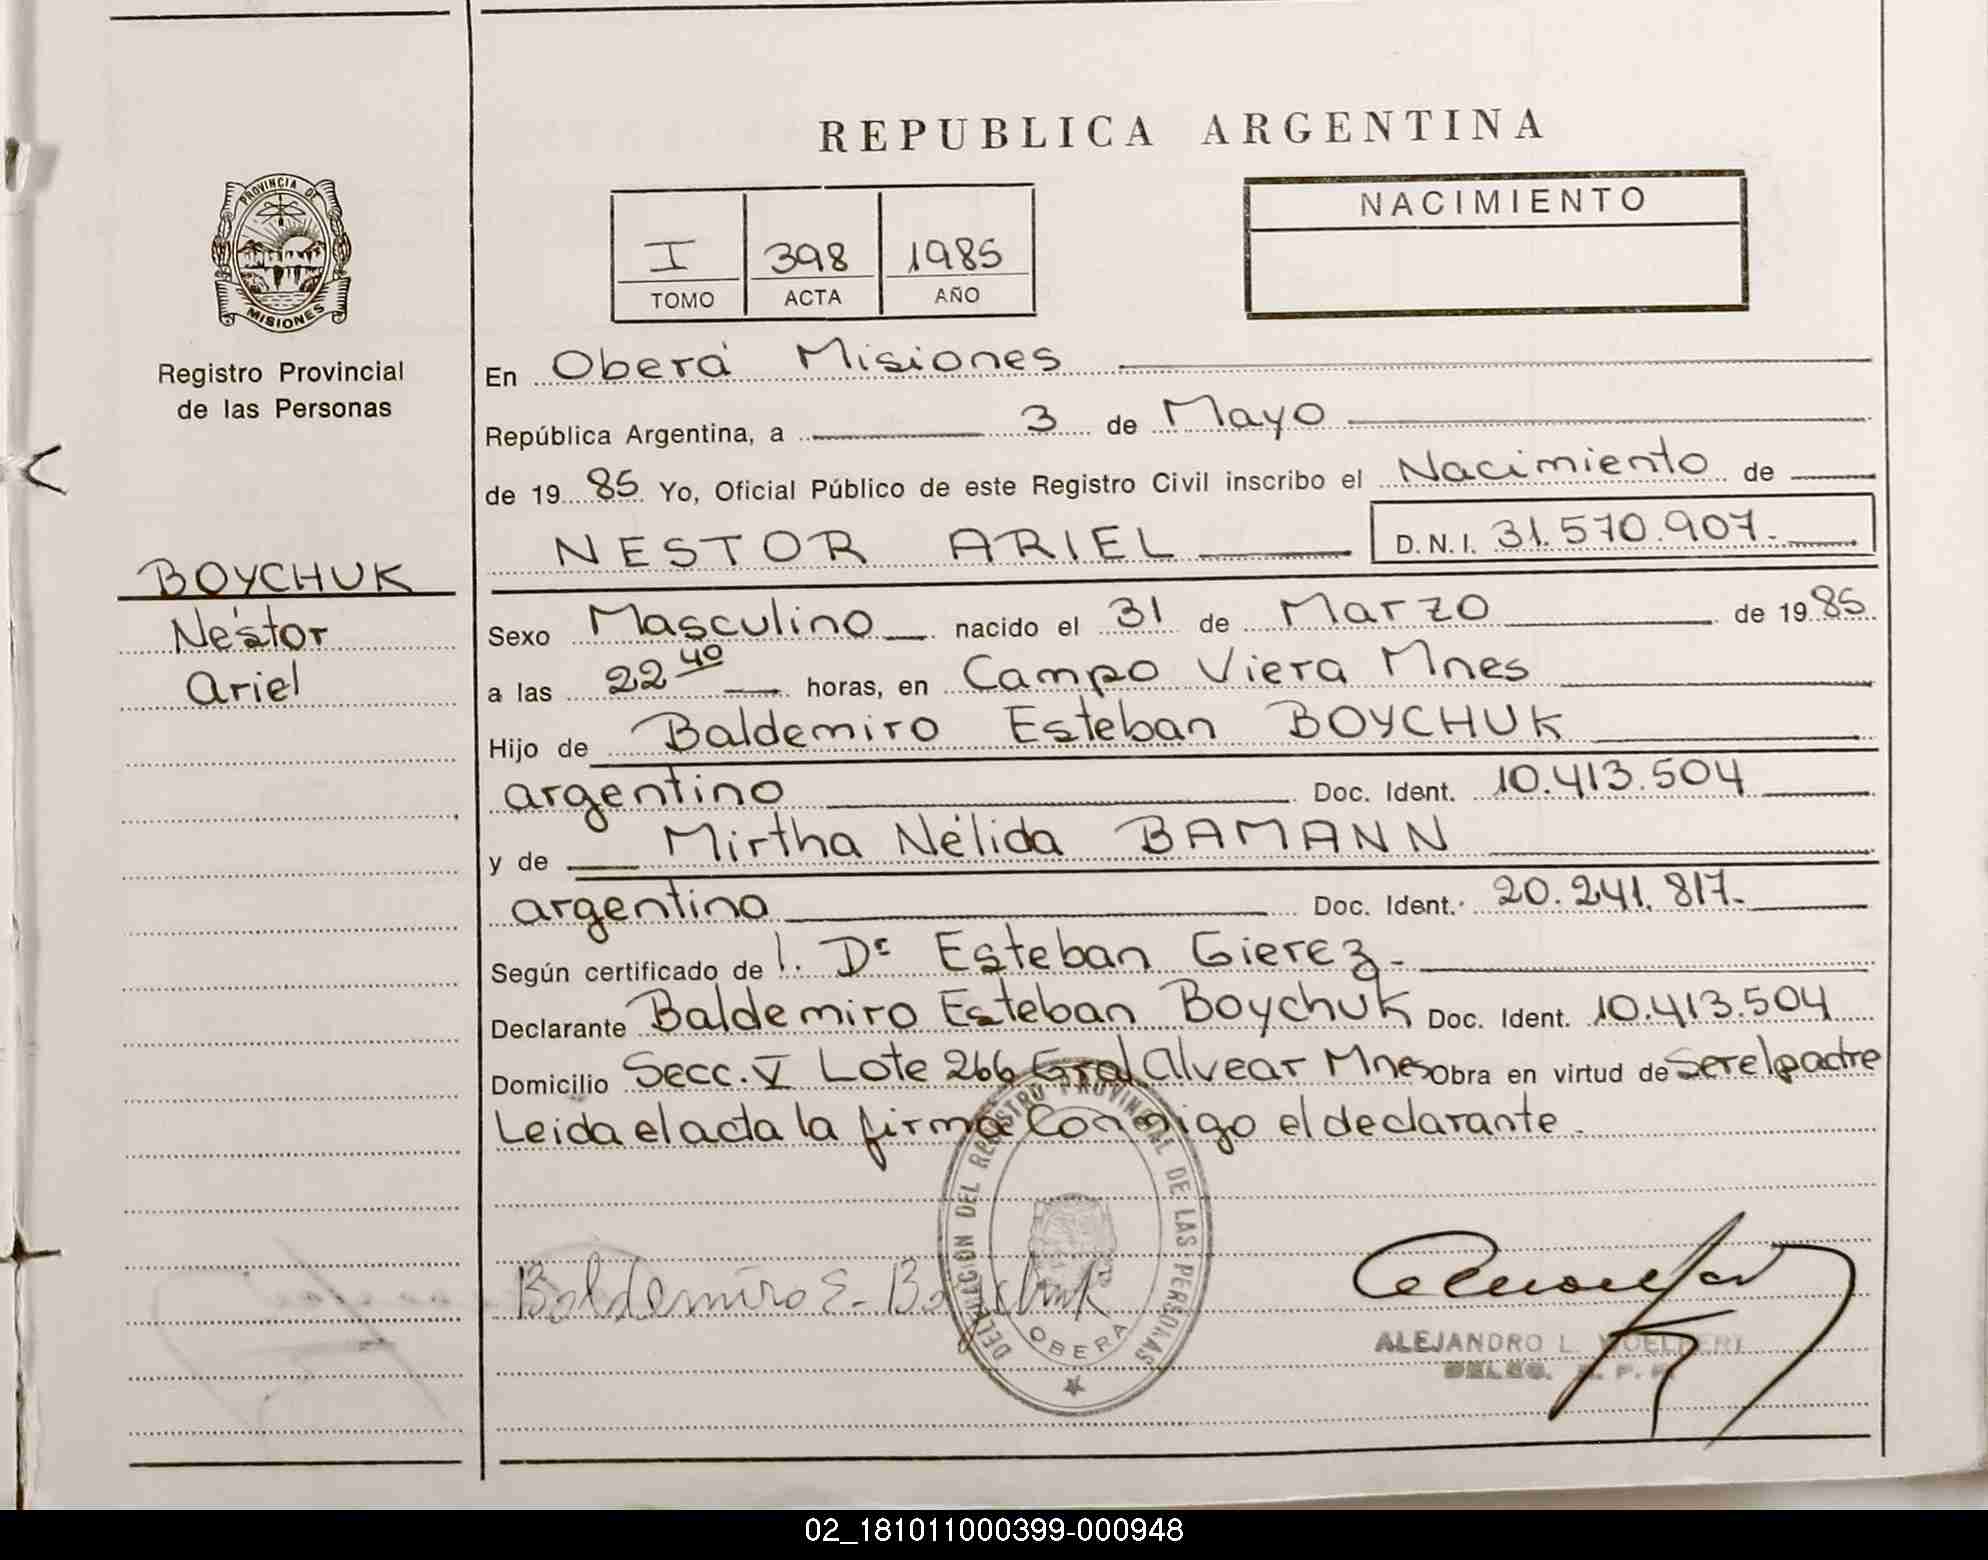 REPUBLICA ARGENTINA
PROVINCIA DE
MISIONES
Registro Provincial
de las Personas
I 398 1985
TOMO ACTA AÑO
NACIMIENTO
En Oberá Misiones
República Argentina, a 3 de Mayo
de 1985 Yo, Oficial Público de este Registro Civil inscribo el Nacimiento de
NESTOR ARIEL D.N.I. 31.570.907.-
BOYCHUK
Néstor
Ariel
Sexo Masculino nacido el 31 de Marzo de 1985
a las 22 40 horas, en Campo Viera Mnes
Hijo de Baldemiro Esteban BOYCHUK
argentino Doc. Ident. 10.413.504
y de Mirtha Nélida BAMANN
argentina Doc. Ident. 20.241.817.-
Según certificado de l. Dr Esteban Gierez.-
Declarante Baldemiro Esteban Boychuk Doc. Ident. 10.413.504
Domicilio Secc. V Lote 266 Gral Alvear Mnes Obra en virtud de ser el padre
Leida el acta la firma Conmigo el declarante.
DELEGACION DEL REGISTRO PROVINCIAL DE LAS PERSONAS
OBERA
Baldemiro E. Boychuk
ALEJANDRO L.
DELEG. R. P. P.
02_181011000399-000948